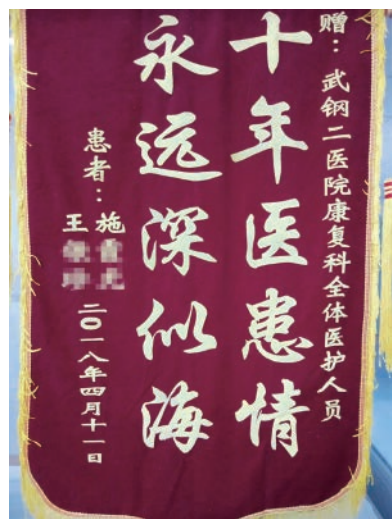 赠：武钢二医院康复科全体医护人员
十年医患情
永远深似海
患者：
施
王
二〇一八年四月十一日